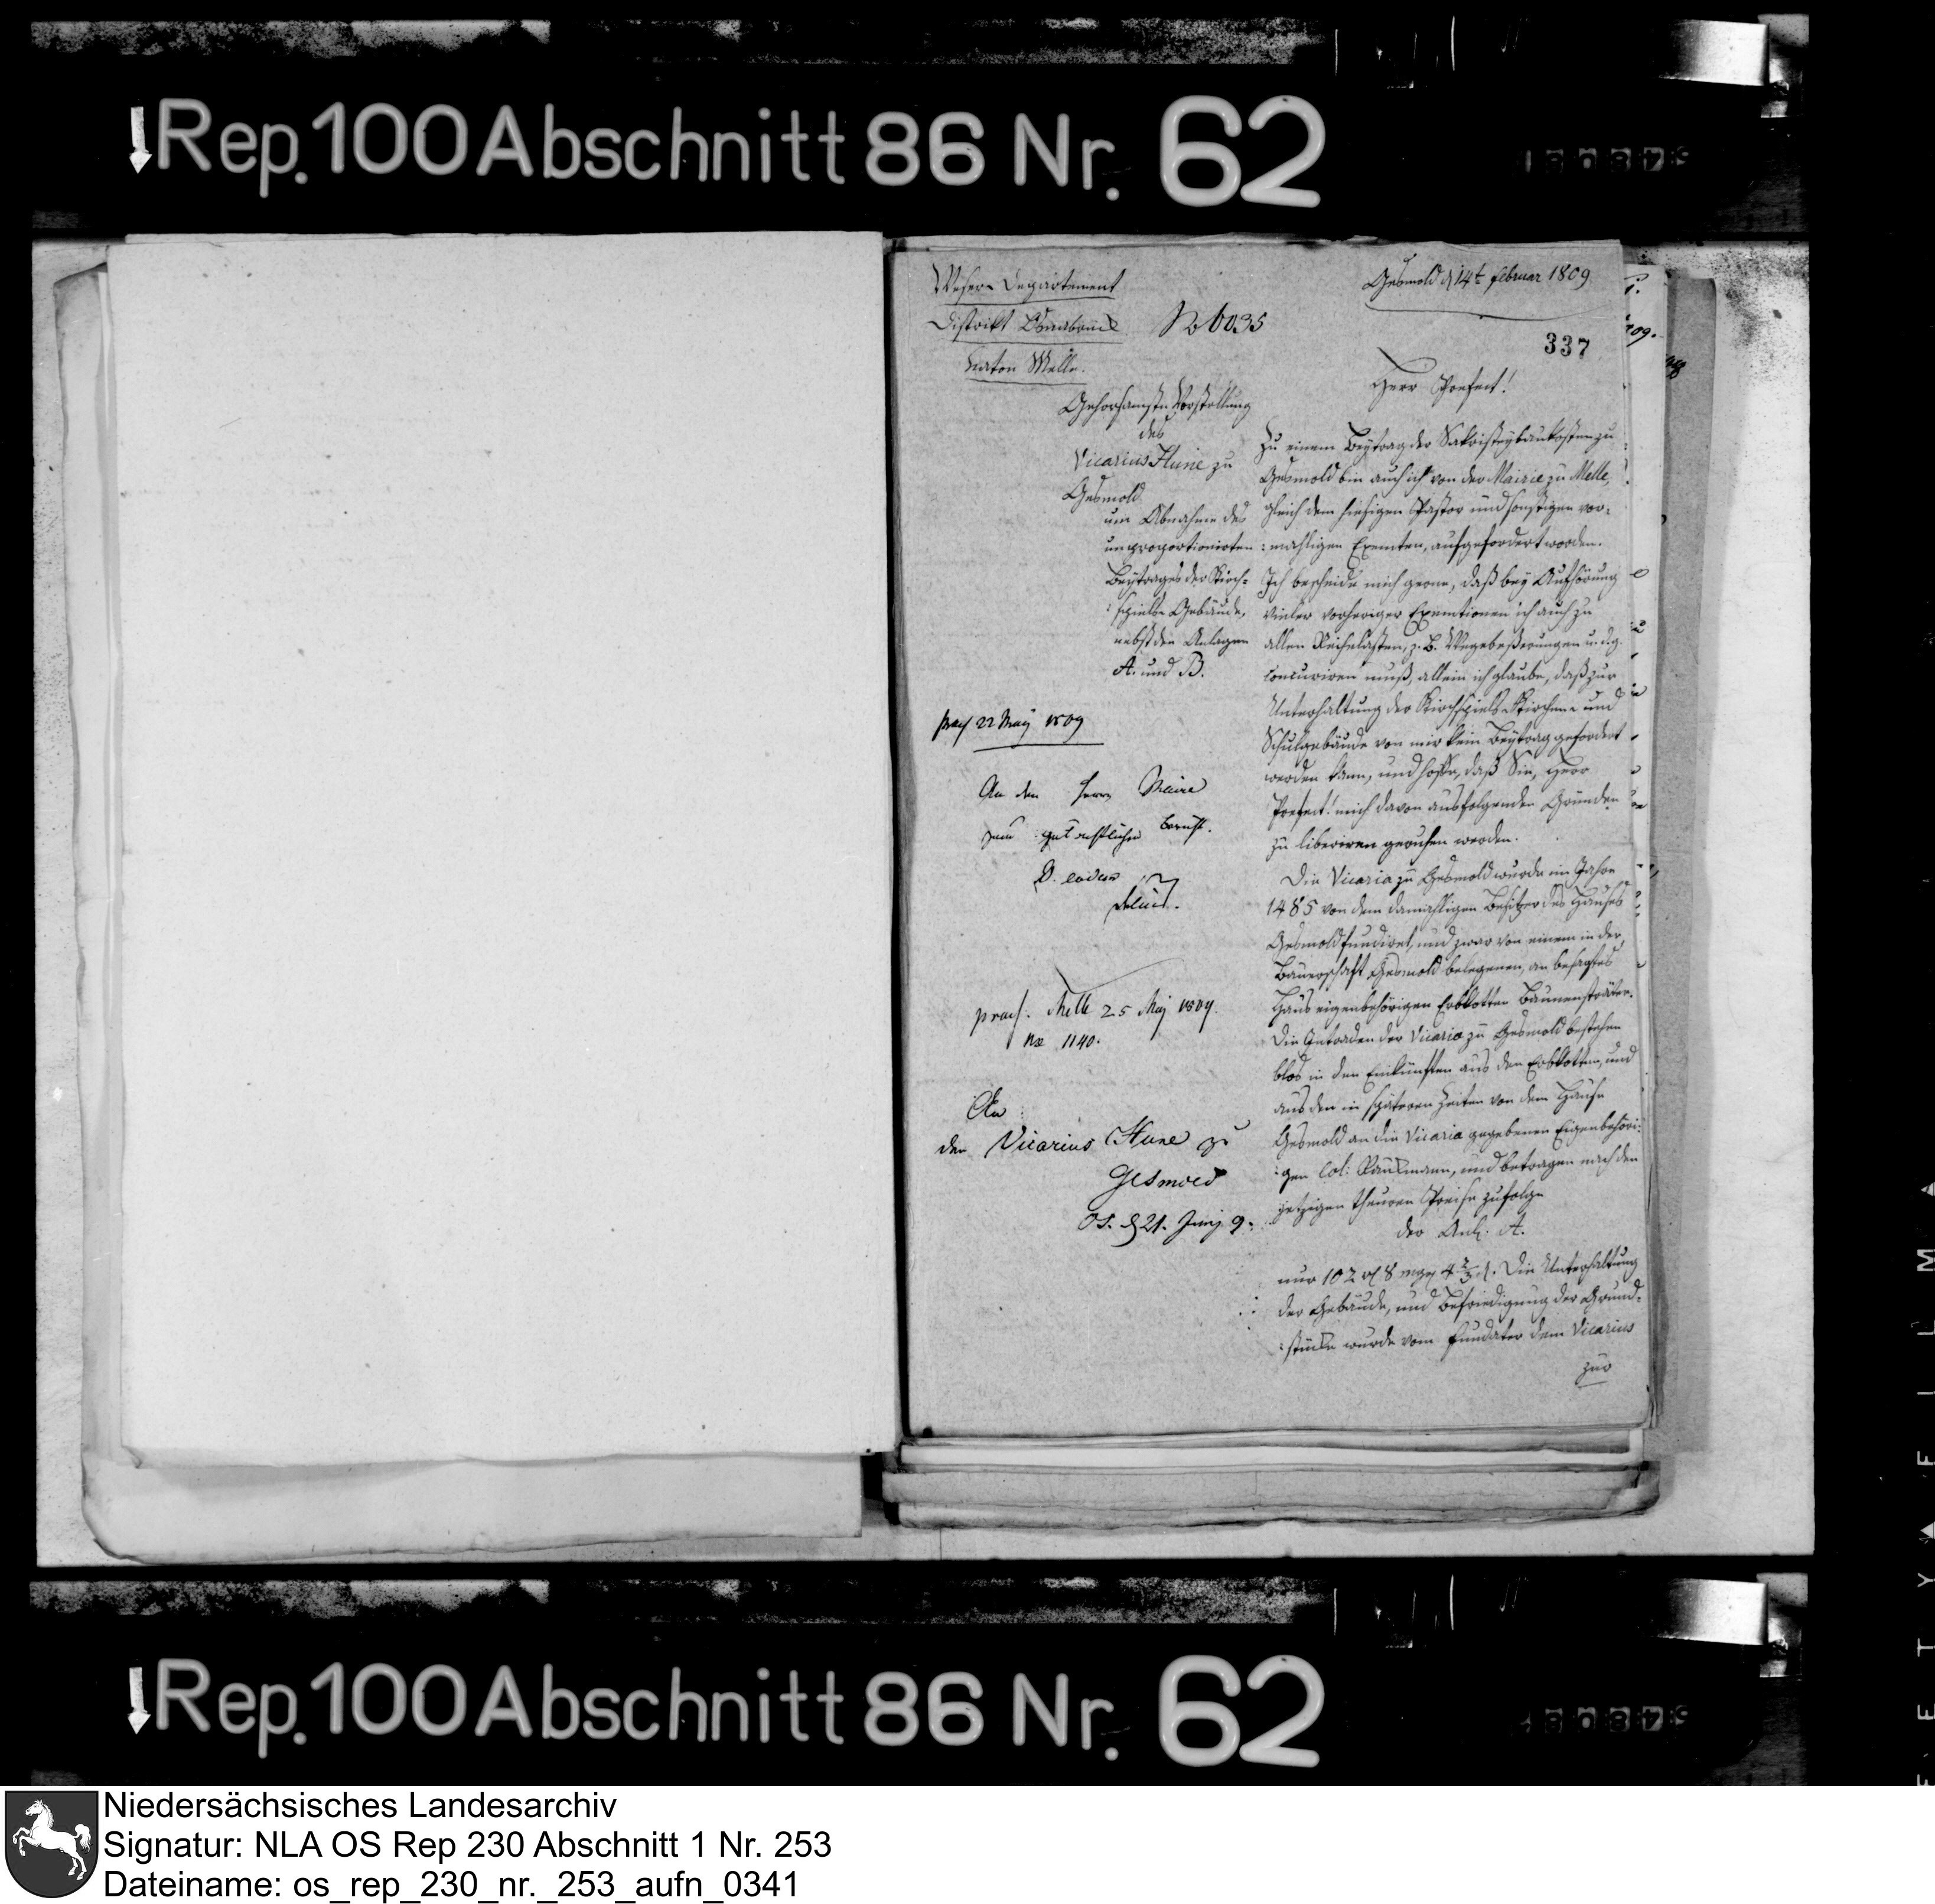 Rep. 100 Abschnitt 86 Nr. 62
Weser-Departement
Distrikt Osnabrück
Canton Melle.
No 6035
Gesmold d 14t. Februar 1809
337
Herr Praefect!
Gehorsamste Vorstellung
des
Vicarius Hune zu
Gesmold
um Abnahme des
unproportionirten
Beytrages der Kirch-
:spiels Gebäude,
nebst den Anlagen
A. und B.
praes 22 May 1809
An den Herrn Maire
zum gutachtlichen Bericht.
D. eodem
Delius.
praes. Melle 25 May 1809.
No 1140.
An
den Vicarius Hune zu
Gesmold
Os. d 21. Junij 9.
Zu einem Beytrag der Sakristeybaukosten zu
Gesmold bin auch ich von der Mairie zu Melle,
gleich dem hiesigen Pastor und sonstigen vor-
:mahligen Exemten, aufgefordert worden.
Ich bescheide mich gerne, daß bey Aufhörung
vieler vorheriger Exemtionen ich auch zu
allen Reihelasten, z. B. Wegebeßerungen u. dg.
concuriren muß, allein ich glaube, daß zur
Unterhaltung der Kirchspiels Kirchen- und
Schulgebäude von mir kein Beytrag gefordert
werden kann, und hoffe, daß Sie, Herr
Praefect! mich davon aus folgenden Gründen
zu liberiren geruhen werden.
Die Vicaria zu Gesmold wurde im Jahre
1485 von dem damahligen Besitzer des Hauses
Gesmold fundiret, und zwar von einem in der
Bauerschaft Gesmold belegenen, an besagtes
Haus eigenbehörigen Erbkotten
Die Intraden der Vicaria zu Gesmold bestehen
blos in den Einkünften aus den Erbkotten, und
aus den in späteren Zeiten von dem Hause
Gesmold an die Vicaria gegebenen Eigenbehöri-
:gen Col: und betragen nach den
jetzigen theuren Preise zufolge
der Anl. A.
nur 102 rl 8 mgr 4 2/3 d. Die Unterhaltung
der Gebäude, und Befriedigung der Grund-
:stücke wurde vom Fundator dem Vicarius
zur
Rep. 100 Abschnitt 86 Nr. 62
Niedersächsisches Landesarchiv
Signatur: NLA OS Rep 230 Abschnitt 1 Nr. 253
Dateiname: os_rep_230_nr._253_aufn_0341